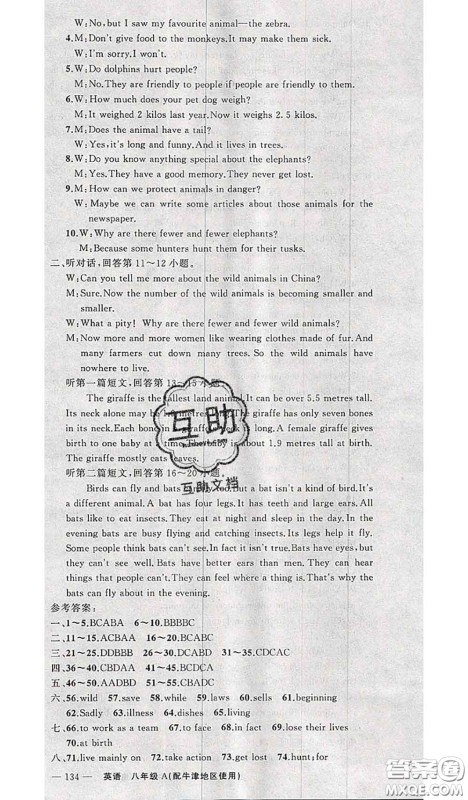 W: No, but I saw my favourite animal—the zebra.
4. M: Don't give food to the monkeys. It may make them sick.
W: I'm sorry. I won't.
5. W: Do dolphins hurt people?
M: No. They are friendly to people if people are friendly to them.
6. W: How much does your pet dog weigh?
M: It weighed 2 kilos last year. Now it weighs 2.5 kilos.
7. M: Does the animal have a tail?
W: Yes, it's long and funny. And it lives in trees.
8. W: Do you know anything special about the elephants?
M: Yes. They have a good memory. They never get lost.
9. M: How can we protect animals in danger?
W: Maybe we can write some articles about those animals for the
newspaper.
10. W: Why are there fewer and fewer elephants?
M: Because some hunters hunt them for their tusks.
二、听对话,回答第 11～12 小题。
W: Can you tell me more about the wild animals in China?
M: Sure. Now the number of the wild animals is becoming smaller and
smaller.
W: What a pity! Why are there fewer and fewer wild animals?
M: Now more and more women like wearing clothes made of fur. And
many farmers cut down many trees. So the wild animals have
nowhere to live.
听第一篇短文,回答第 13～15 小题。
The giraffe is the tallest land animal. It can be over 5.5 metres tall.
Its neck alone may be two metres long. The giraffe has only seven bones
in its neck. Each bone in it is very long. A female giraffe gives
birth to one baby at a time. The baby is about 1.9 metres tall at birth.
The giraffe mostly eats leaves.
听第二篇短文,回答第 16～20 小题。
Birds can fly and bats can fly, too. But a bat isn't a bird. It's
a different animal. A bat has four legs. It has large teeth and ears.
All bats like to eat insects. They eat at night and sleep in the day. In
the evening bats are busy flying and catching insects. Its legs help it fly.
Some people think bats can't see. In fact it isn't true. Bats have eyes, but
they can't see well. Bats have better ears than men. Bats can hear
things that people can't. They can feel where a thing is. That's why the
bats can fly about in the evening.
参考答案:
一、1～5. BCABA 6～10. BBBBC
二、11～15. ACBAA 16～20. BCABC
三、21～25. DDBBB 26～30. DCABD 31～35. CDCAC
四、36～40. CBDAA 41～45. BCDCA
五、46～50. AADBD 51～55. DACDB
六、56. wild 57. save 58. while 59. laws 60. sells 61. beginning
62. Sadly 63. illness 64. dishes 65. living
七、66. to work out 67. to face 68. in fact 69. lose their lives
70. at birth
八、71. live mainly on 72. take action 73. get lost 74. hunt; for
— 134 — 英语 八年级 A(配牛津地区使用)
互助
互助文档
答案圈
MXQE.COM